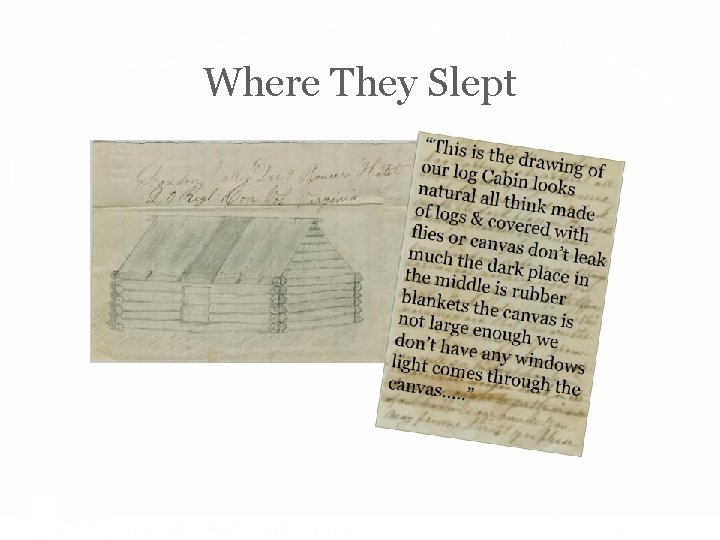 Where They Slept
Pioneers Hotel
20 Regt Con Vol Virginia
“This is the drawing of
our log Cabin looks
natural all think made
of logs & covered with
flies or canvas don’t leak
much the dark place in
the middle is rubber
blankets the canvas is
not large enough we
don’t have any windows
light comes through the
canvas…..”